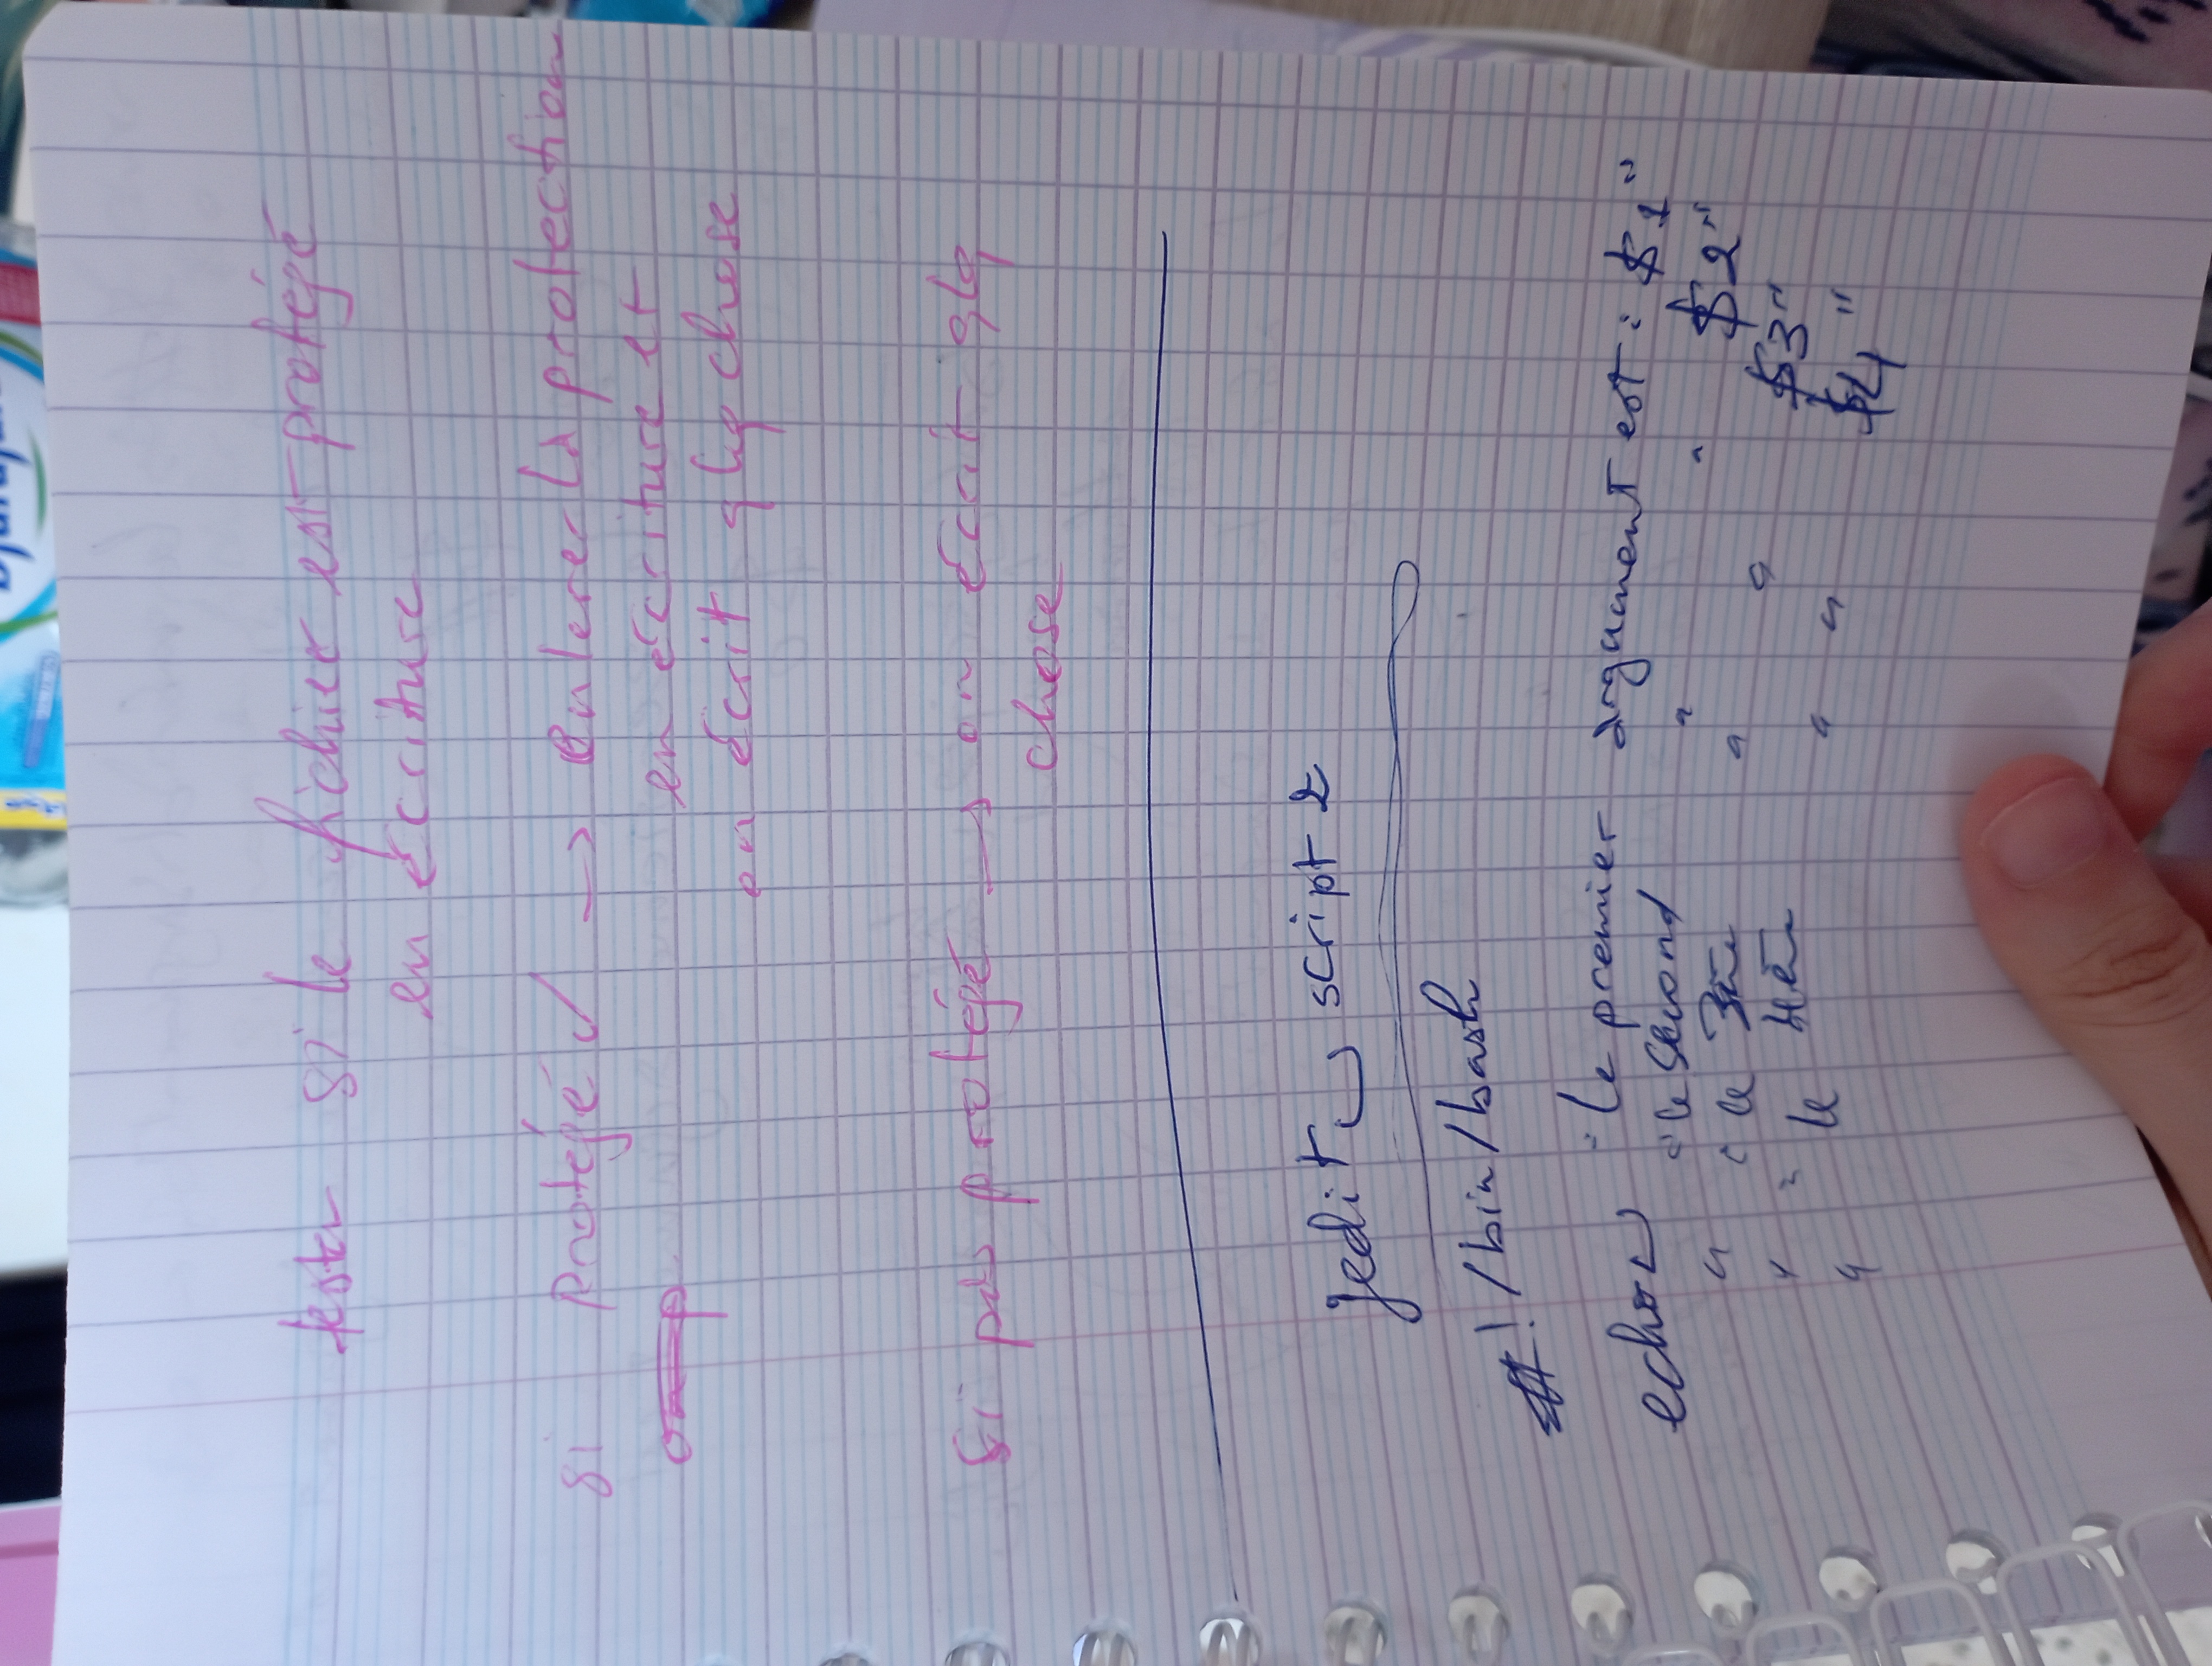 tester si le fichier est protégé
en écriture
si protégé ✓ → enlever la protection
en écriture et
on écrit qlq chose
si pas protégé → on écrit qlq
chose
gedit script 2
#!/bin/bash
echo "le premier argument est : $1"
" "le second " " $2"
" "le 3ème " " $3"
" "le 4ème " " $4"